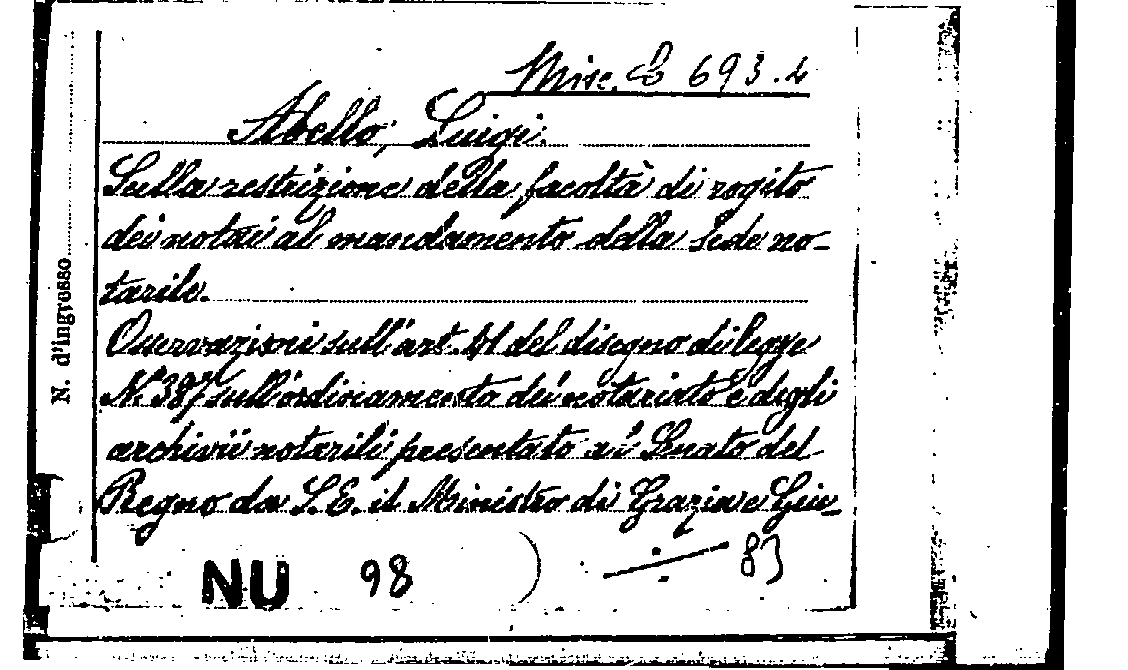 Misc. B 693.4
Abello, Luigi.
Sulla restrizione della facoltà di rogito
dei notai al mandamento della sede no-
tarile.
Osservazioni sull'art. 41 del disegno di legge
N. 387 sull'ordinamento dei notariato e degli
archivii notarili presentato al Senato del
Regno da S. E. il Ministro di Grazia e Giu-
N. d'ingresso
NU 98 83